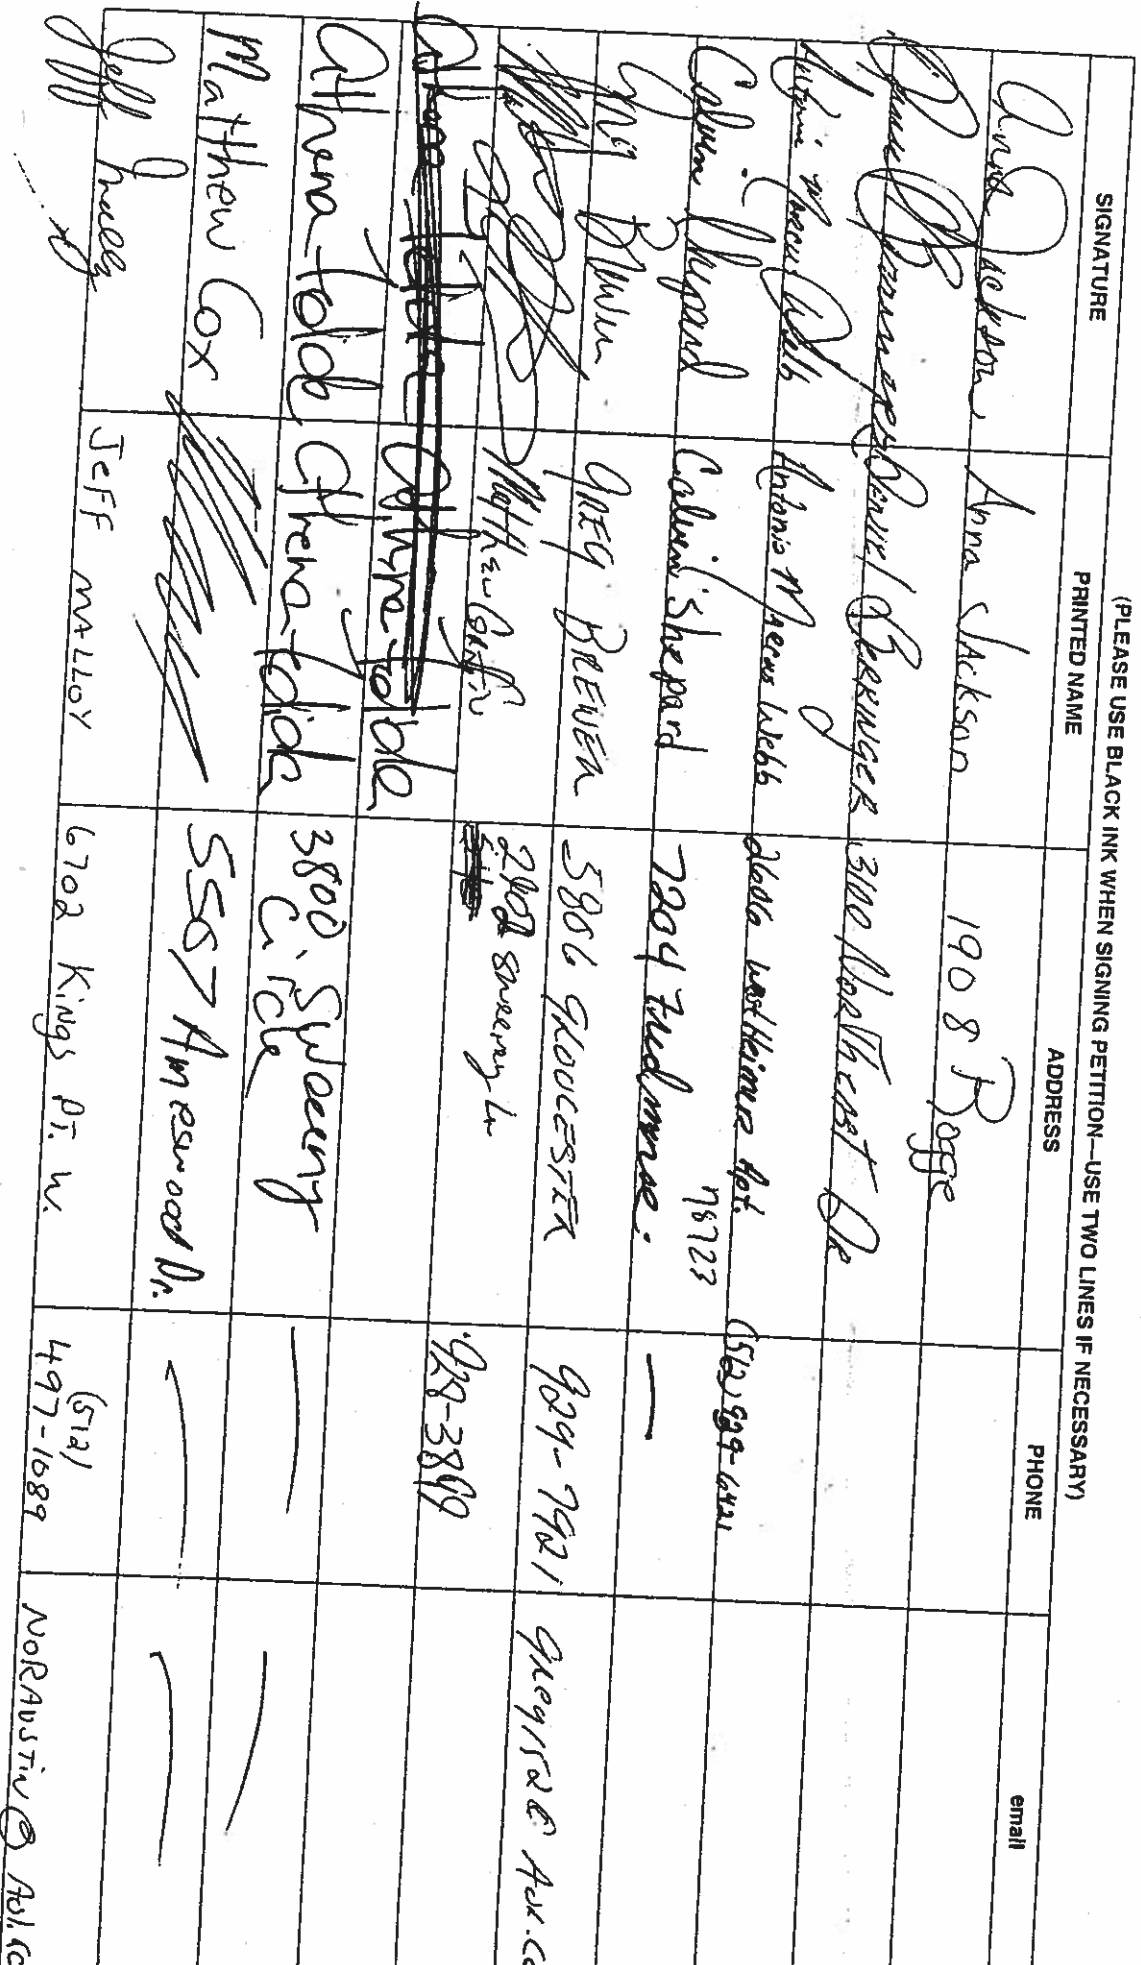 (PLEASE USE BLACK INK WHEN SIGNING PETITION—USE TWO LINES IF NECESSARY)
SIGNATURE PRINTED NAME ADDRESS PHONE email
Anna Jackson Anna Jackson 1908 Boggie
Daniel Berringer 3100 Northeast Dr
Antonio Marcus Webb Antonio Marcus Webb 2606 westHeimer Apt. (512) 929-6421
78723
Calvin Shepard Calvin Shepard 7204 —
Greg Brewer GREG BREWER 5806 GLOUCESTER 929-7921 greg152@Aol.co
Matthew Sweeney Ln 928-3899
Athena-tolida
Athena-tolida Athena-tolida 3800 Sweeny Circle —
Matthew Cox 5567 Ameswood Dr. — —
Jeff JEFF MALLOY 6702 Kings Pt. W. (512) 497-1689 NORAUSTIN@AOL.CO